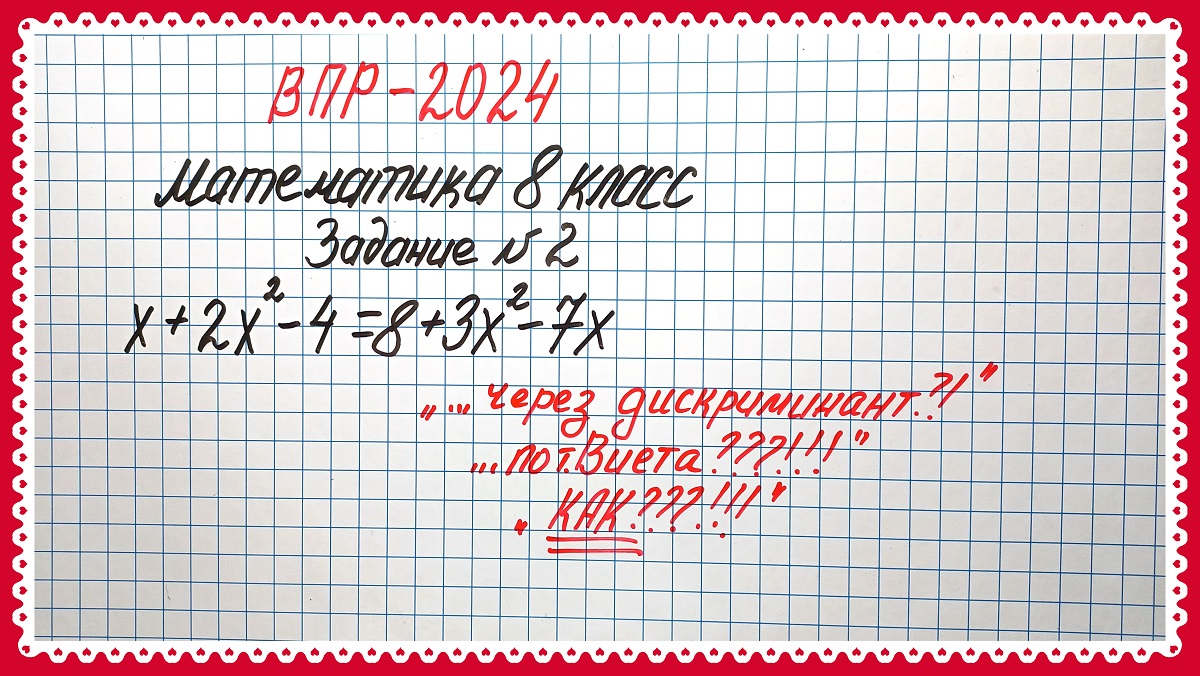 ВПР-2024
Математика 8 класс
Задание №2
x+2x²-4=8+3x²-7x
„... через дискриминант.?!"
...по т.Виета???!!!"
„КАК???!!!"